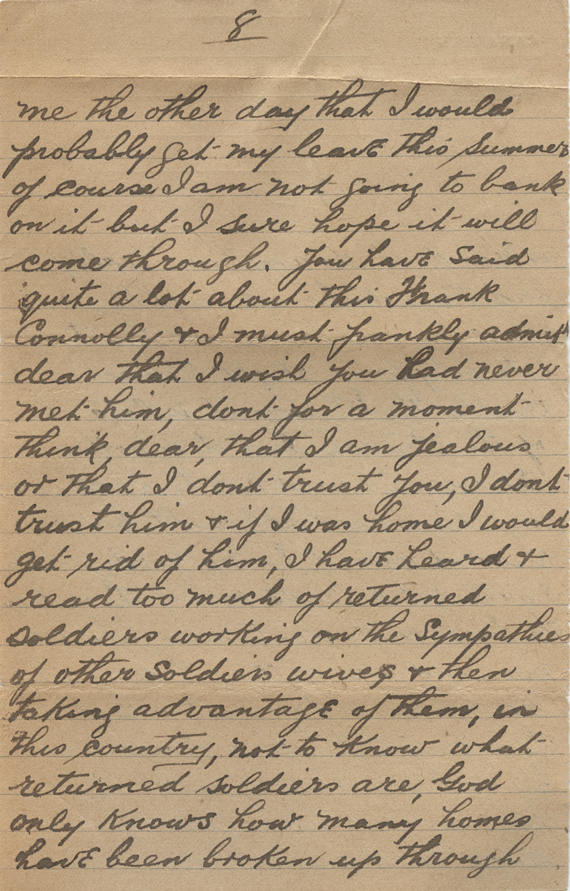 8
me the other day that I would
probably get my leave this summer
of course I am not going to bank
on it but I sure hope it will
come through. You have said
quite a lot about this Frank
Connolly & I must frankly admit
dear that I wish you had never
met him, dont for a moment
think, dear, that I am jealous
or that I dont trust you, I dont
trust him & if I was home I would
get rid of him, I have heard &
read too much of returned
soldiers working on the sympathies
of other soldiers wives & then
taking advantage of them, in
this country, not to know what
returned soldiers are, God
only knows how many homes
have been broken up through